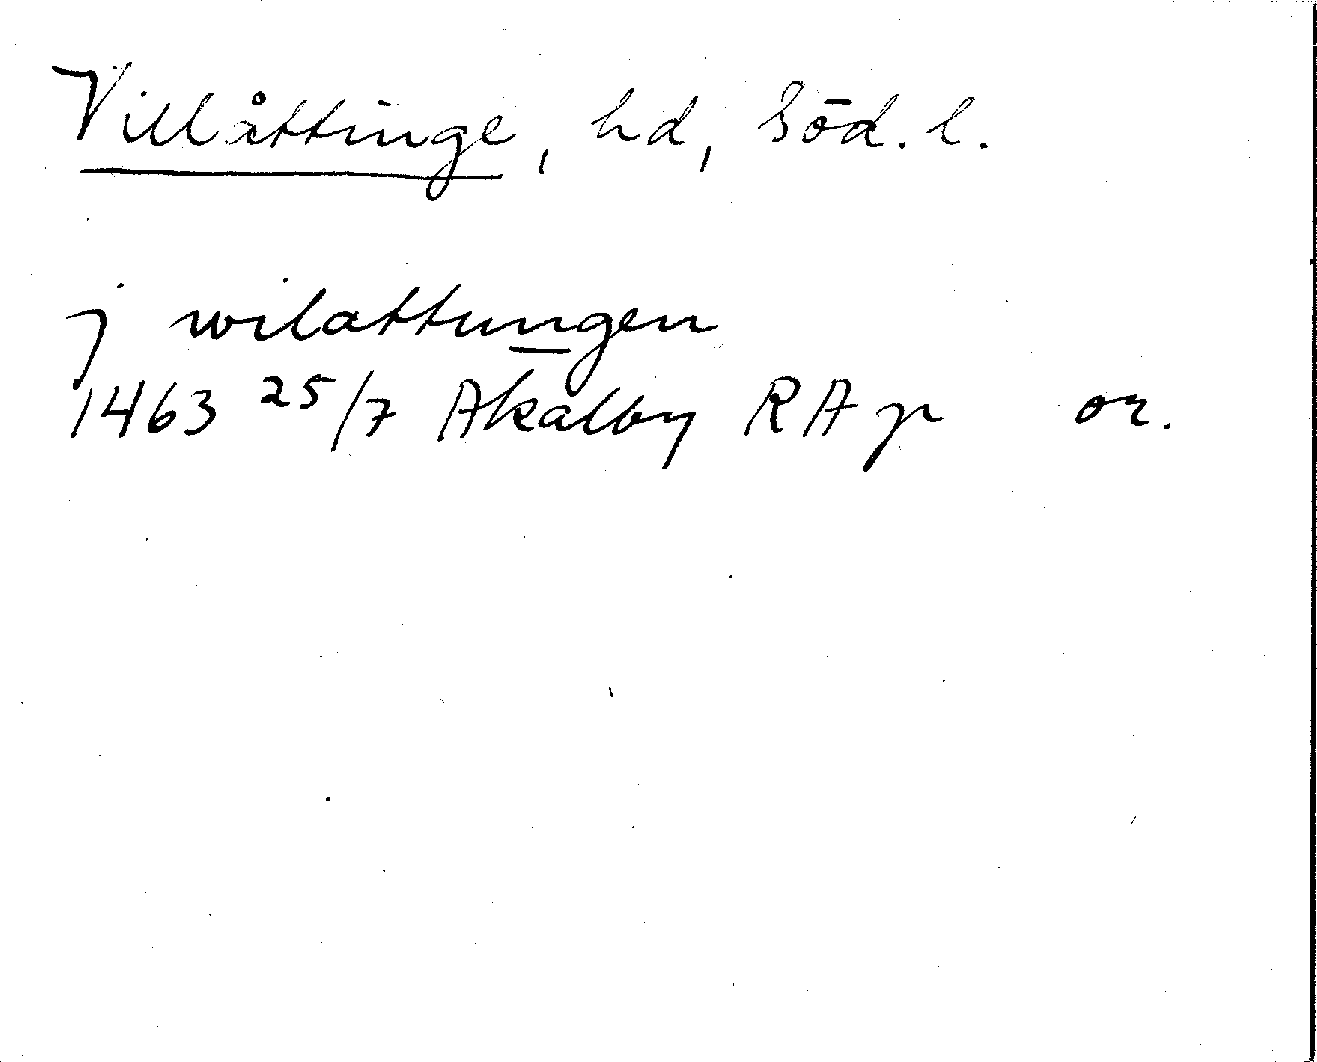 Villåttinge, hd, Söd. l.
j wilattungen
1463 25/7 Akalby RA p or.